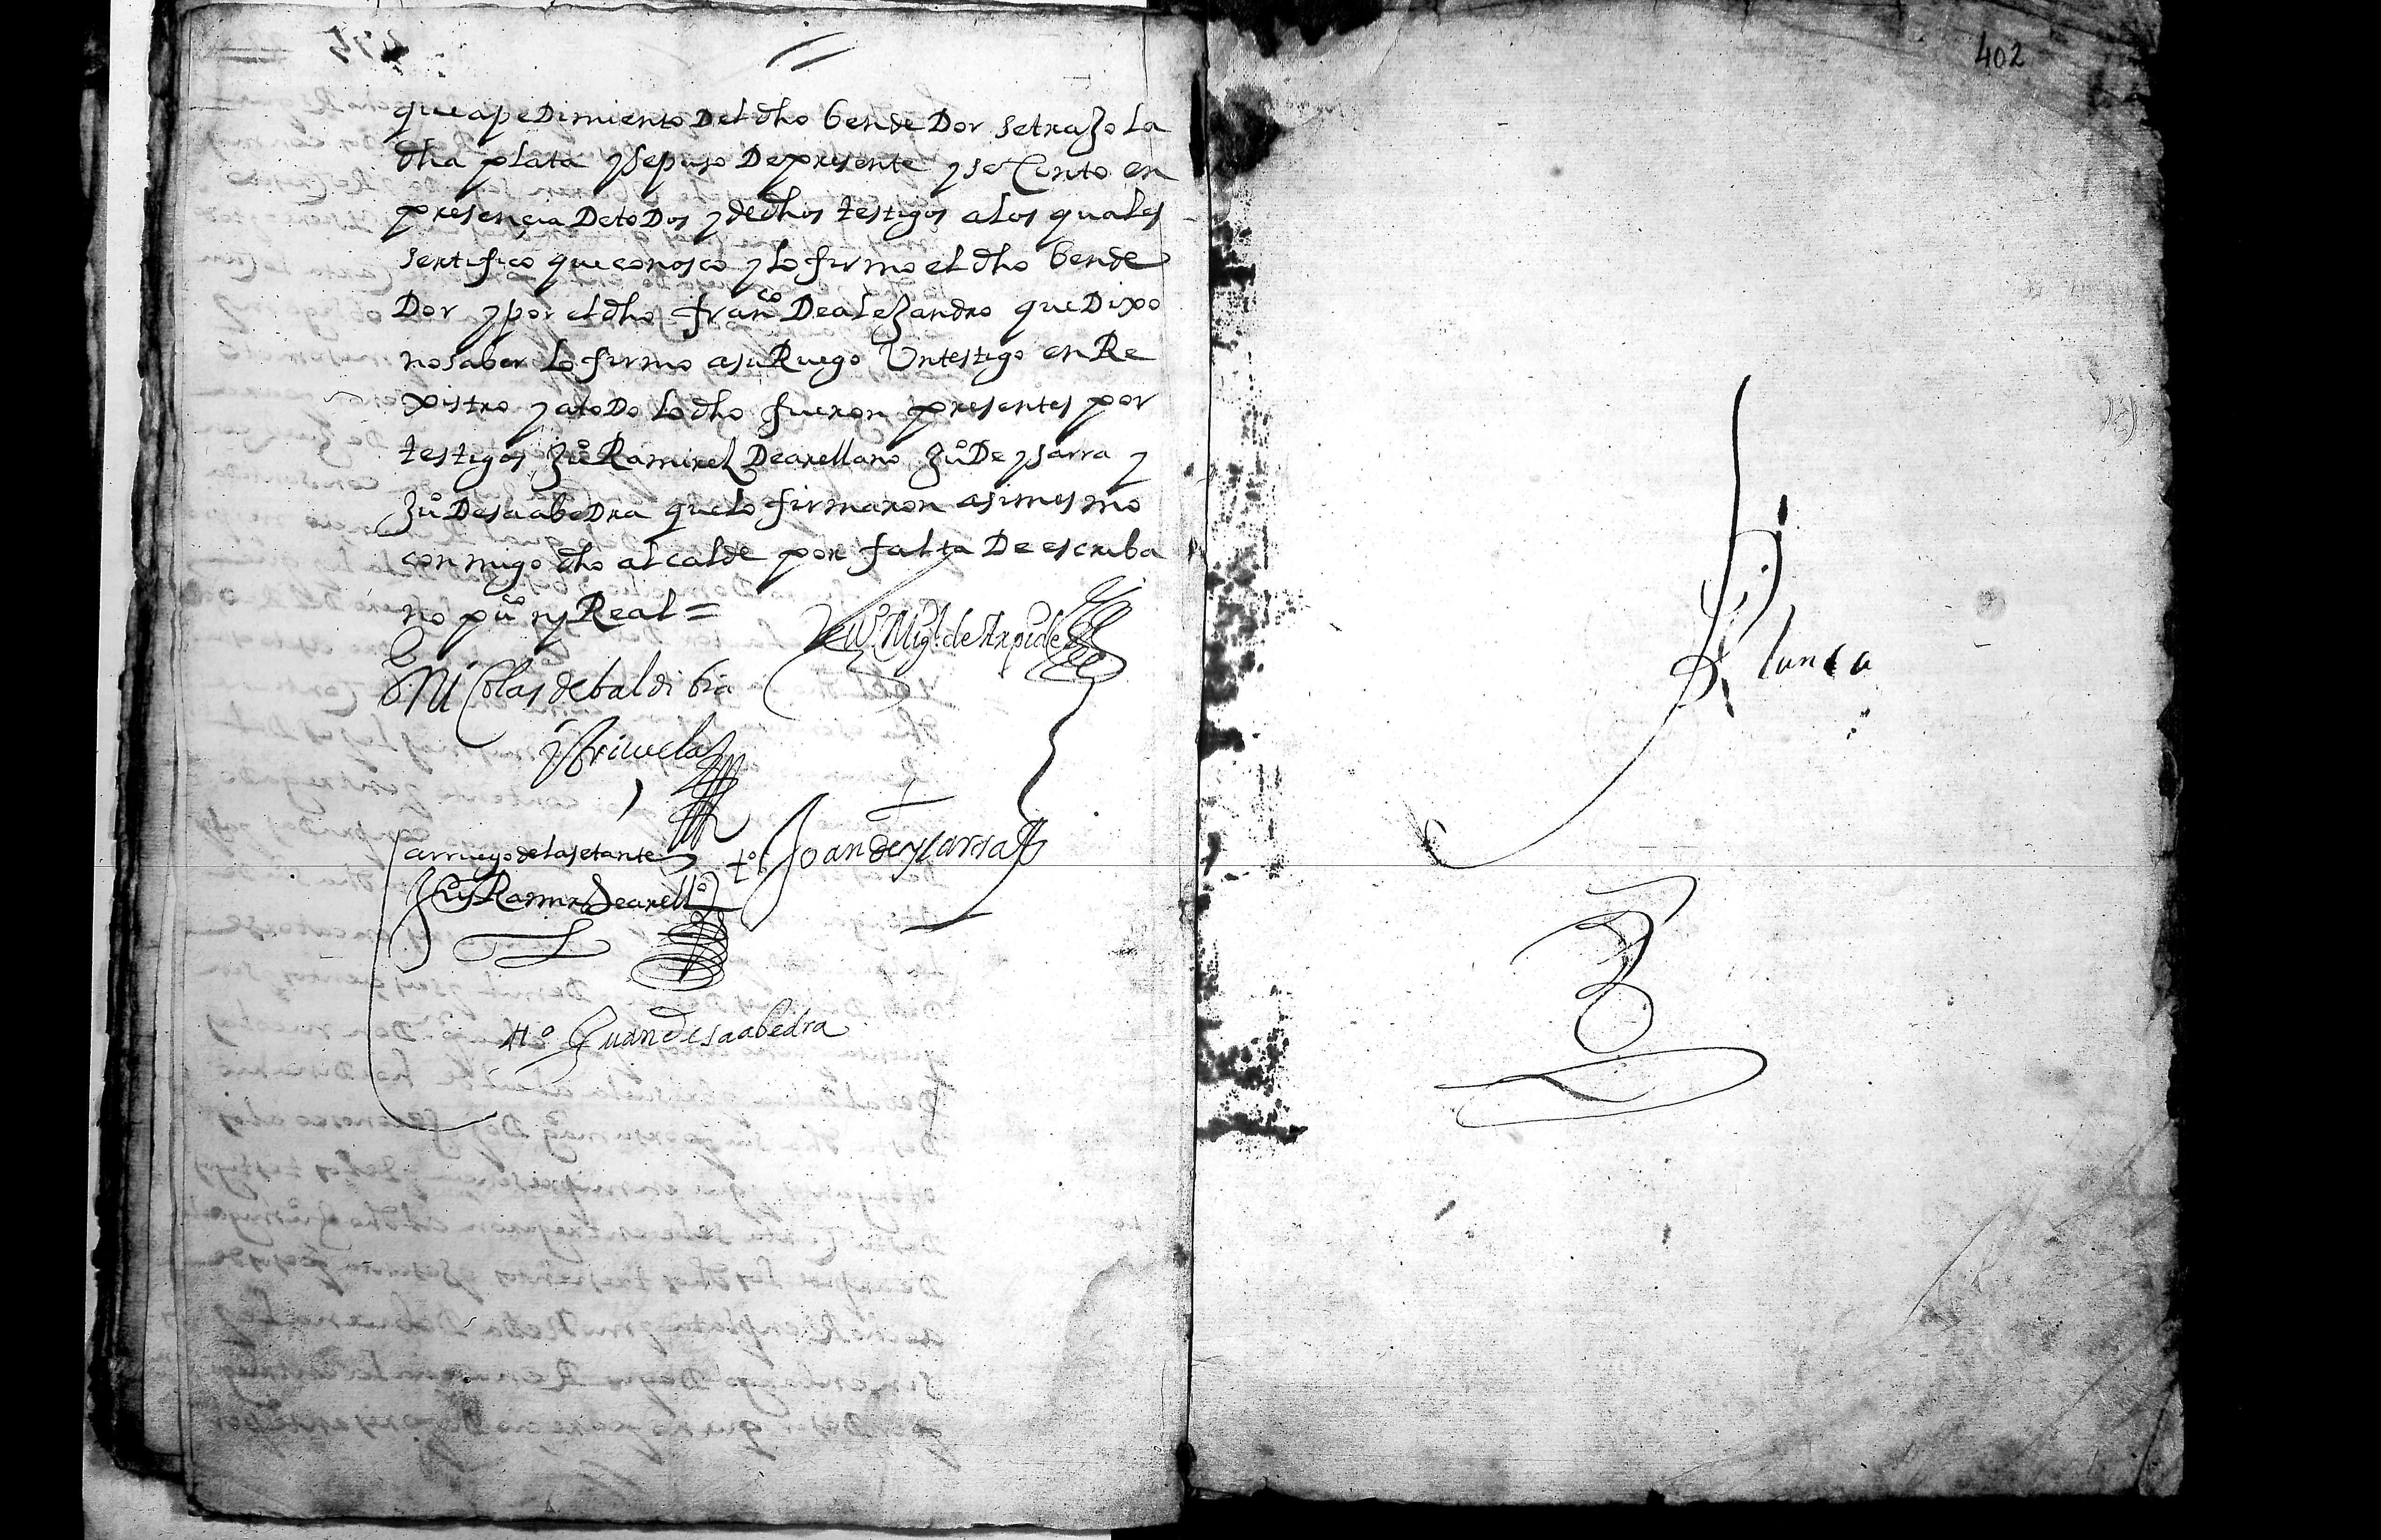 que apedimiento Del dho bendeDor se traxo la
dha plata y se puso De presente y se Conto en
presençia De toDos y de dhos testigos a los quales
sertifico que conosco y lo firmo el dho bende
Dor y por el dho franco De alexandro que Dixo
no saber lo firmo a su Ruego Un testigo en Re
xistro y a toDo lo dho fueron presentes por
testigos Ju° Ramirez De arellano Ju° De ysarra y
Ju° De saabeDra que lo firmaron asimesmo
conmigo dho alcalde por falta De escriba
no puco ny Real =
Migl de
Nicolas de baldibia
y Briçuela
a rruego del asetante
to Joan de yçarra
Ju° Ramirz de arello
to Juan de saabedra
402
Blanca